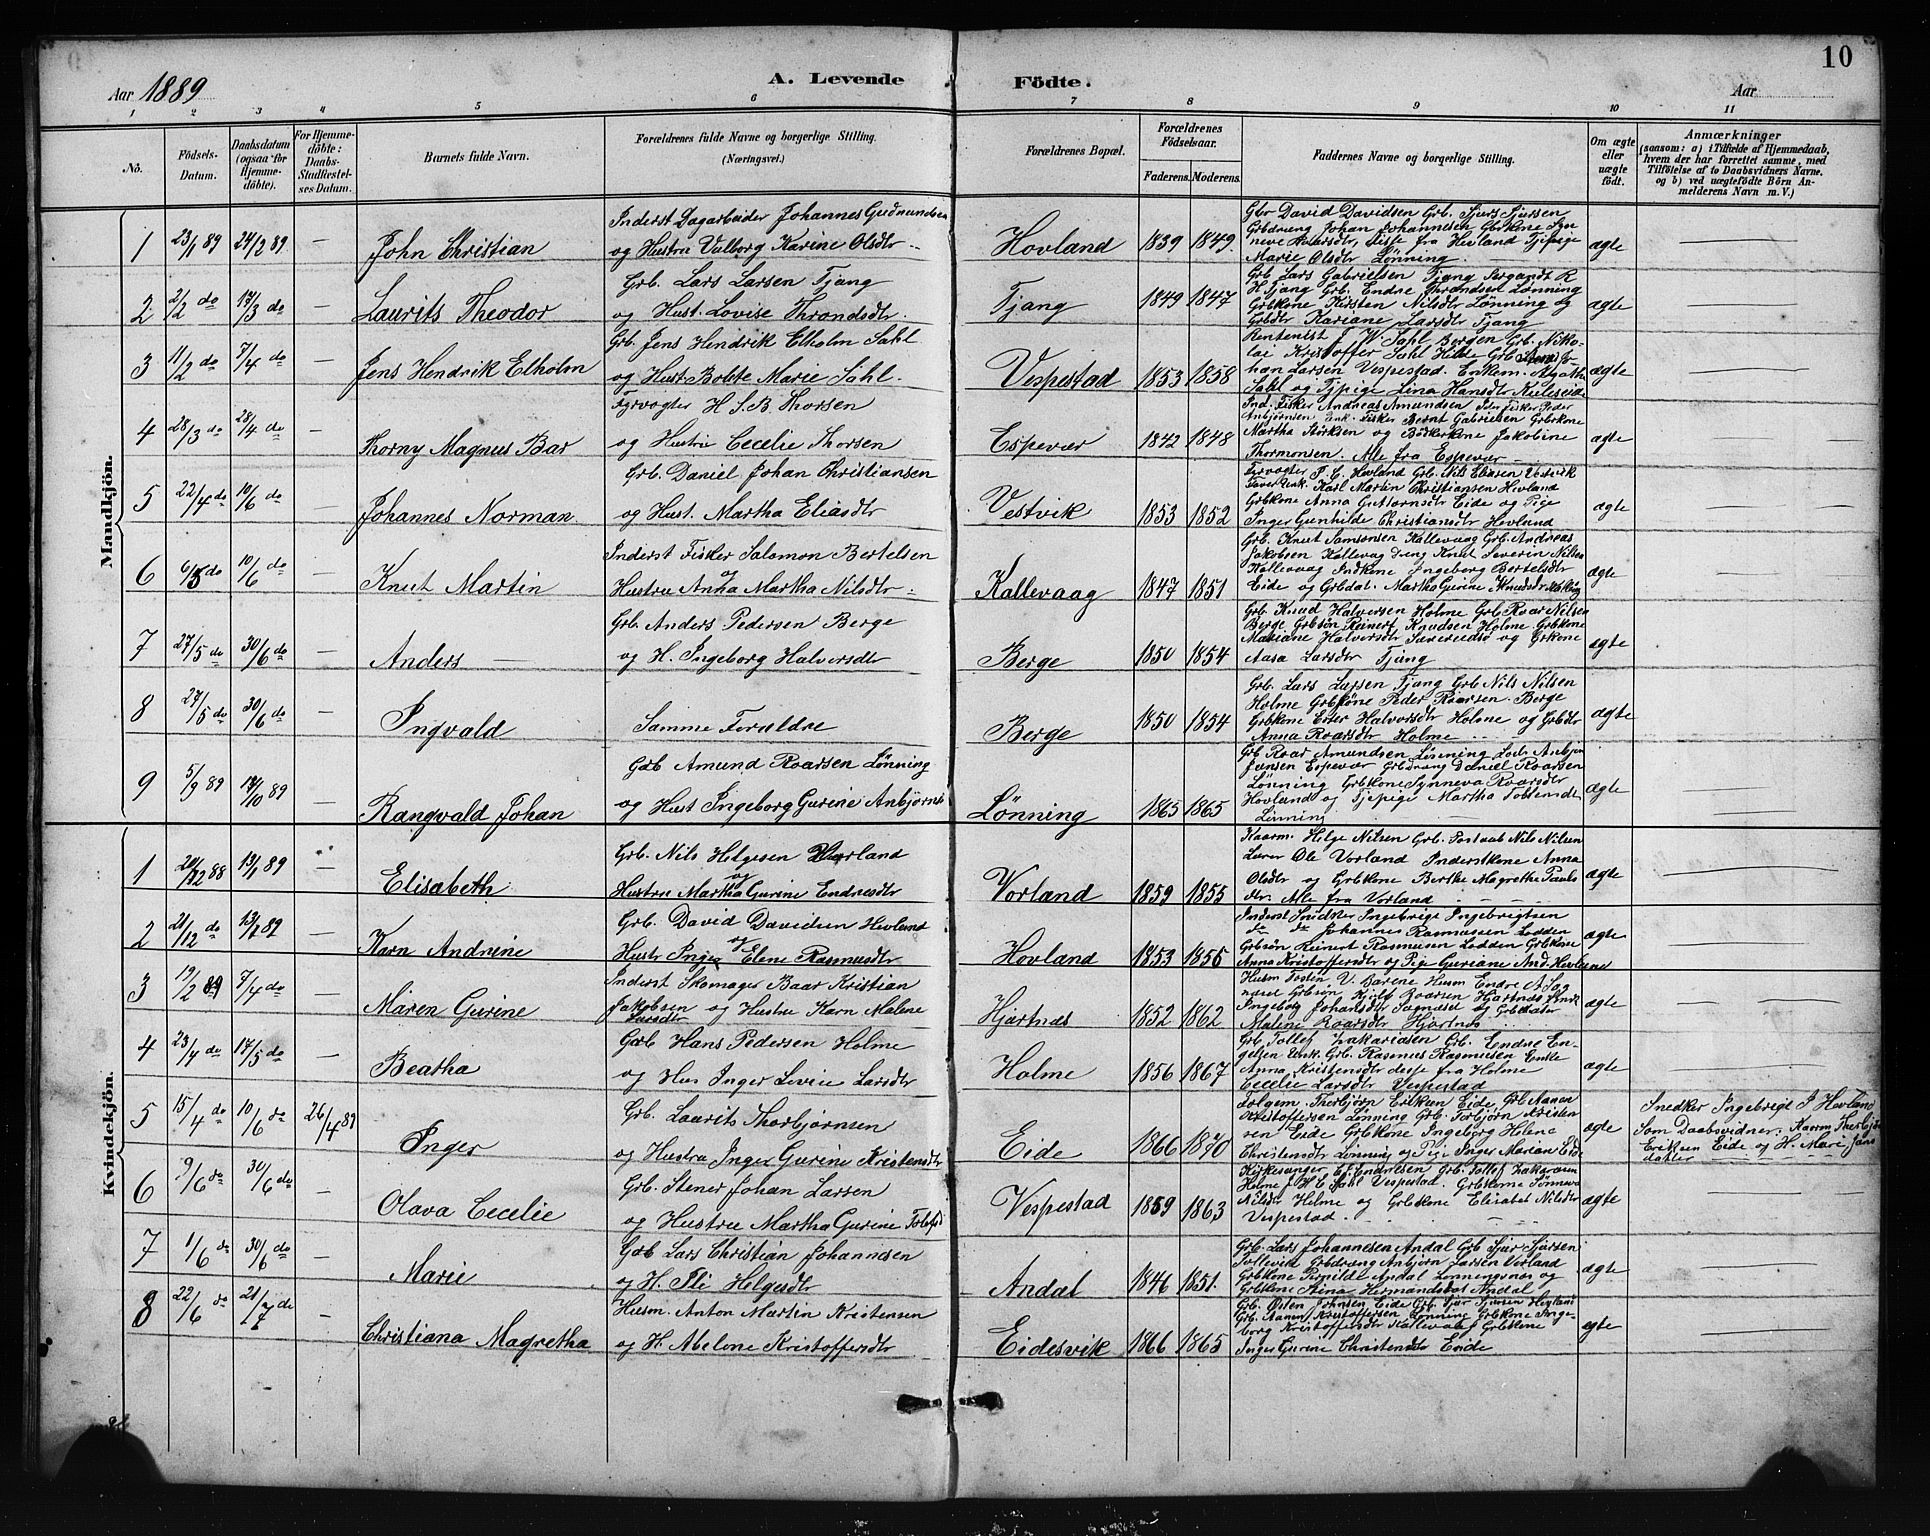 10
Aar 1889
A. Levende Födte.
Aar
1 2 3 4 5 6 7 8 9 10 11
No.
Födsels-Datum.
Daabsdatum (ogsaa for Hjemmedöbte).
For Hjemmedöbte: Daabs-Stadfæstelses Datum.
Barnets fulde Navn.
Forældrenes fulde Navne og borgerlige Stilling. (Næringsvei.)
Forældrenes Bopæl.
Forældrenes Födselsaar.
Faderens. Moderens.
Faddernes Navne og borgerlige Stilling.
Om ægte eller uægte födt.
Anmærkninger
(saasom: a) i Tilfælde af Hjemmedaab, hvem der har forrettet samme, med Tilföielse af to Daabsvidners Navne. og b) ved uægtefödte Börn Anmelderens Navn m. V.)
Mandkjön.
1 23/1 89 24/2 89 — John Christian
Inderst Dagarbeider Johannes Gudmundsen
og Hustru Valborg Karine Olsdtr
Hovland 1839 1849
Gbr David Davidsen Grb. Sjurs Sjursen
Grbdreng Johan Johannesen Grbkone
fra Hovland Tjpige
Marie Olsdtr Lønning
ægte
2 2/2 do 17/3 do — Laurits Theodor
Grb. Lars Larsen Tjang
og Hust. Lovise Throndsdtr.
Tjang 1849 1847
Grb Lars Gabrielsen Tjang Sergandt R
H Tjang Grb. Endre Throndsen Lønning
Grbkone Kirsten Nilsdtr Lønning og
Grbdtr Kariane Larsdtr Tjang
ægte
3 11/2 do 7/4 do — Jens Hendrik Elholm
Grb. Jens Hendrik Elholm Sahl
og Hust Bolte Marie Sahl.
Vespestad 1853 1858
Rentenist J. W. Sahl Bergen Grb. Niko-
lai Kristoffer Sahl Hilde Grb
han Larsen Vespestad. Enkem. Agatha
Sahl og Tjpige Lina Hansdtr Kuleseide
ægte
4 28/3 do 28/4 do — Thorny Magnus Bar
Fyrvogter H. S. B. Thorsen
og Hustru Cecelie Thorsen
Espevær 1842 1848
Ind. Fisker Andreas Amundsen Inder fisker Peder
Anbjørnsen Enk. Fisker Bernt Gabrielsen Grbkone
Martha Størksen og Bødkerkone Jakobine
Thormonsen. Alle fra Espevær
ægte
5 22/4 do 10/6 do — Johannes Norman
Grb. Daniel Johan Christiansen
og Hust. Martha Eliasdtr
Vestvik 1853 1852
Fyrvogter P. G. Hovland Grb. Nils Eliasen Vestvik
Karl Martin Christiansen Hovland
Grbkone Anna Guttormsdtr Eide og Pige
Inger Gunhilde Christiansdtr Hovland
ægte
6 6/5 do 10/6 do — Knut Martin
Inderst Fisker Salomon Bertelsen
og
Hustru Anna Martha Nilsdtr
Kallevaag 1847 1851
Grb. Knut Samsonsen Kallevaag Grb. Andreas
Jakobsen Kallevaag Dreng Knut Severin Nilsen
Kallevaag Indkone Ingeborg Bertelsdtr
Eide og Grbdat. Martha Gurine Knudsdtr
ægte
7 27/5 do 30/6 do — Anders
Grb. Anders Pedersen Berge
og H. Ingeborg Halversdtr
Berge 1850 1854
Grb. Knud Halversen Holme Grb Roar Nilsen
Berge Grbsøn Reinert Knudsen Holme Grbkone
Mariane Halversdtr og Grkone
Aasa Larsdtr Tjang
ægte
8 27/5 do 30/6 do — Ingvald
Samme Foreldre
Berge 1850 1854
Grb. Lars Larsen Tjang Grb Nils Nilsen
Holme Grbsøne Peder Roarsen Berge
Grbkone Ester Halvorsdtr Holme og Grbdtr
Anna Roarsdtr Holme
ægte
9 5/9 89 17/10 89 — Rangvald Johan
Grb Amund Roarsen Lønning
og Hust Ingeborg Gurine Anbjørns
Lønning 1865 1865
Grb Roar Amundsen Lønning Lods Anbjørn
Jansen Espevær Grbdreng Daniel Roarsen
Lønning Grbkone Synneva Roarsdtr
Hovland og Tjpige Martha
Lønning
ægte
Kvindekjön.
1 20/12 88 13/1 89 Elisabeth
Grb. Nils Helgesen Vorland
og
Hustru Martha Gurine Endresdtr
Vorland 1859 1855
Kaarm. Helge Nilsen Grb. Postaab Nils Nilsen
Lærer Ole Vorland Inderstkone Anna
Olsdtr og Grbkone Berthe Magrethe Pauls
dtr. Alle fra Vorland
ægte
2 21/12 do 13/1 89 — Karn Andrine
Grb. David Davidsen Hovland
og
Hustr Inger Elene Rasmusdtr
Hovland 1853 1855
Inderst Snidker Ingebrigt Ingebrigtsen
do do Johannes Rasmussen Lodden
Grbsøn Reinert Rasmusen Lodden Grbkone
Anna Kristoffersdtr og Pige Guriane And. Hovland
ægte
3 19/2 89 7/4 do — Maren Gurine
Inderst Skomager Baar Kristian
Jakobsen og Hustru Karn Malene
Larsdtr
Hjartnæs 1852 1862
Husm Tostin V. Barene Husm Endre
Grbsøn Kjell Roarsen Hjartnæs
Ingeborg Johansdtr og Grbdatter
Malene Roarsdtr Hjartnæs
ægte
4 23/4 do 17/5 do — Beatha
Grb Hans Pedersen Holme
og Hus Inger Levise Larsdtr
Holme 1856 1867
Grb Tollef Zakariasen Grb. Endre En-
gelsen Enk. Grb. Rasmus Rasmusen Enke
Anna Kristensdtr desse fra Holme
Cecelie Larsdtr Vespestad
ægte
5 15/4 do 10/6 do 26/4 89 Inger
Grb. Laurits Thorbjørnsen
og Hustru Inger Gurine Kristensdtr
Eide 1866 1870
Følgem. Thorbjørn Eriksen Eide Grb Aanen
Kristoffersen Lønning Grb. Torbjørn Kristen
sen Eide Grbkone Ingeborg Helene
Christensdtr Lønning og Pige Inger Marian Eide
ægte
Snedker Ingebrigt I Hovland
Som Daabsvidner. Kaarm Thorbjø
Eriksen Eide og H. Mari Jans
datter
6 9/6 do 30/6 do — Olava Cecelie
Grb. Stener Johan Larsen
og Hustru Martha Gurine Tolefsd
Vespestad 1859 1863
Kirkesanger Grb. Tollef Zakariasen
Holme J. H. E. Sahl Vespestad. Grbkone Sønneva
Nilsdtr Holme og Grbkone Elisabet Nilsdtr
Vespestad
ægte
7 1/6 do 30/6 do — Marie
Grb Lars Christian Johannesen
og H. Eli Helgesdtr
Andal 1846 1851
Grb. Lars Johannesen Andal Grb Sjur Sjursen
Tollevik Grbdreng Anbjørn Larsen Vorland
Grbkone Pernilde Andal Lønningsnæs og
Grbkone Stina Hermandsdat Andal
ægte
8 22/6 do 21/7 do Christiana Magretha
Husm. Anton Martin Kristensen
og H. Abelone Kristoffersdtr
Eidesvik 1866 1865
Grb. Østen Johnsen Eide Grb. Sjur Sjursen Hovland
Grb. Aanen Kristoffersen Lønning Grbkone Inge-
borg Kristoffersdtr Kallevaag Grbkone
Inger Gurine Christensdtr Eide
ægte